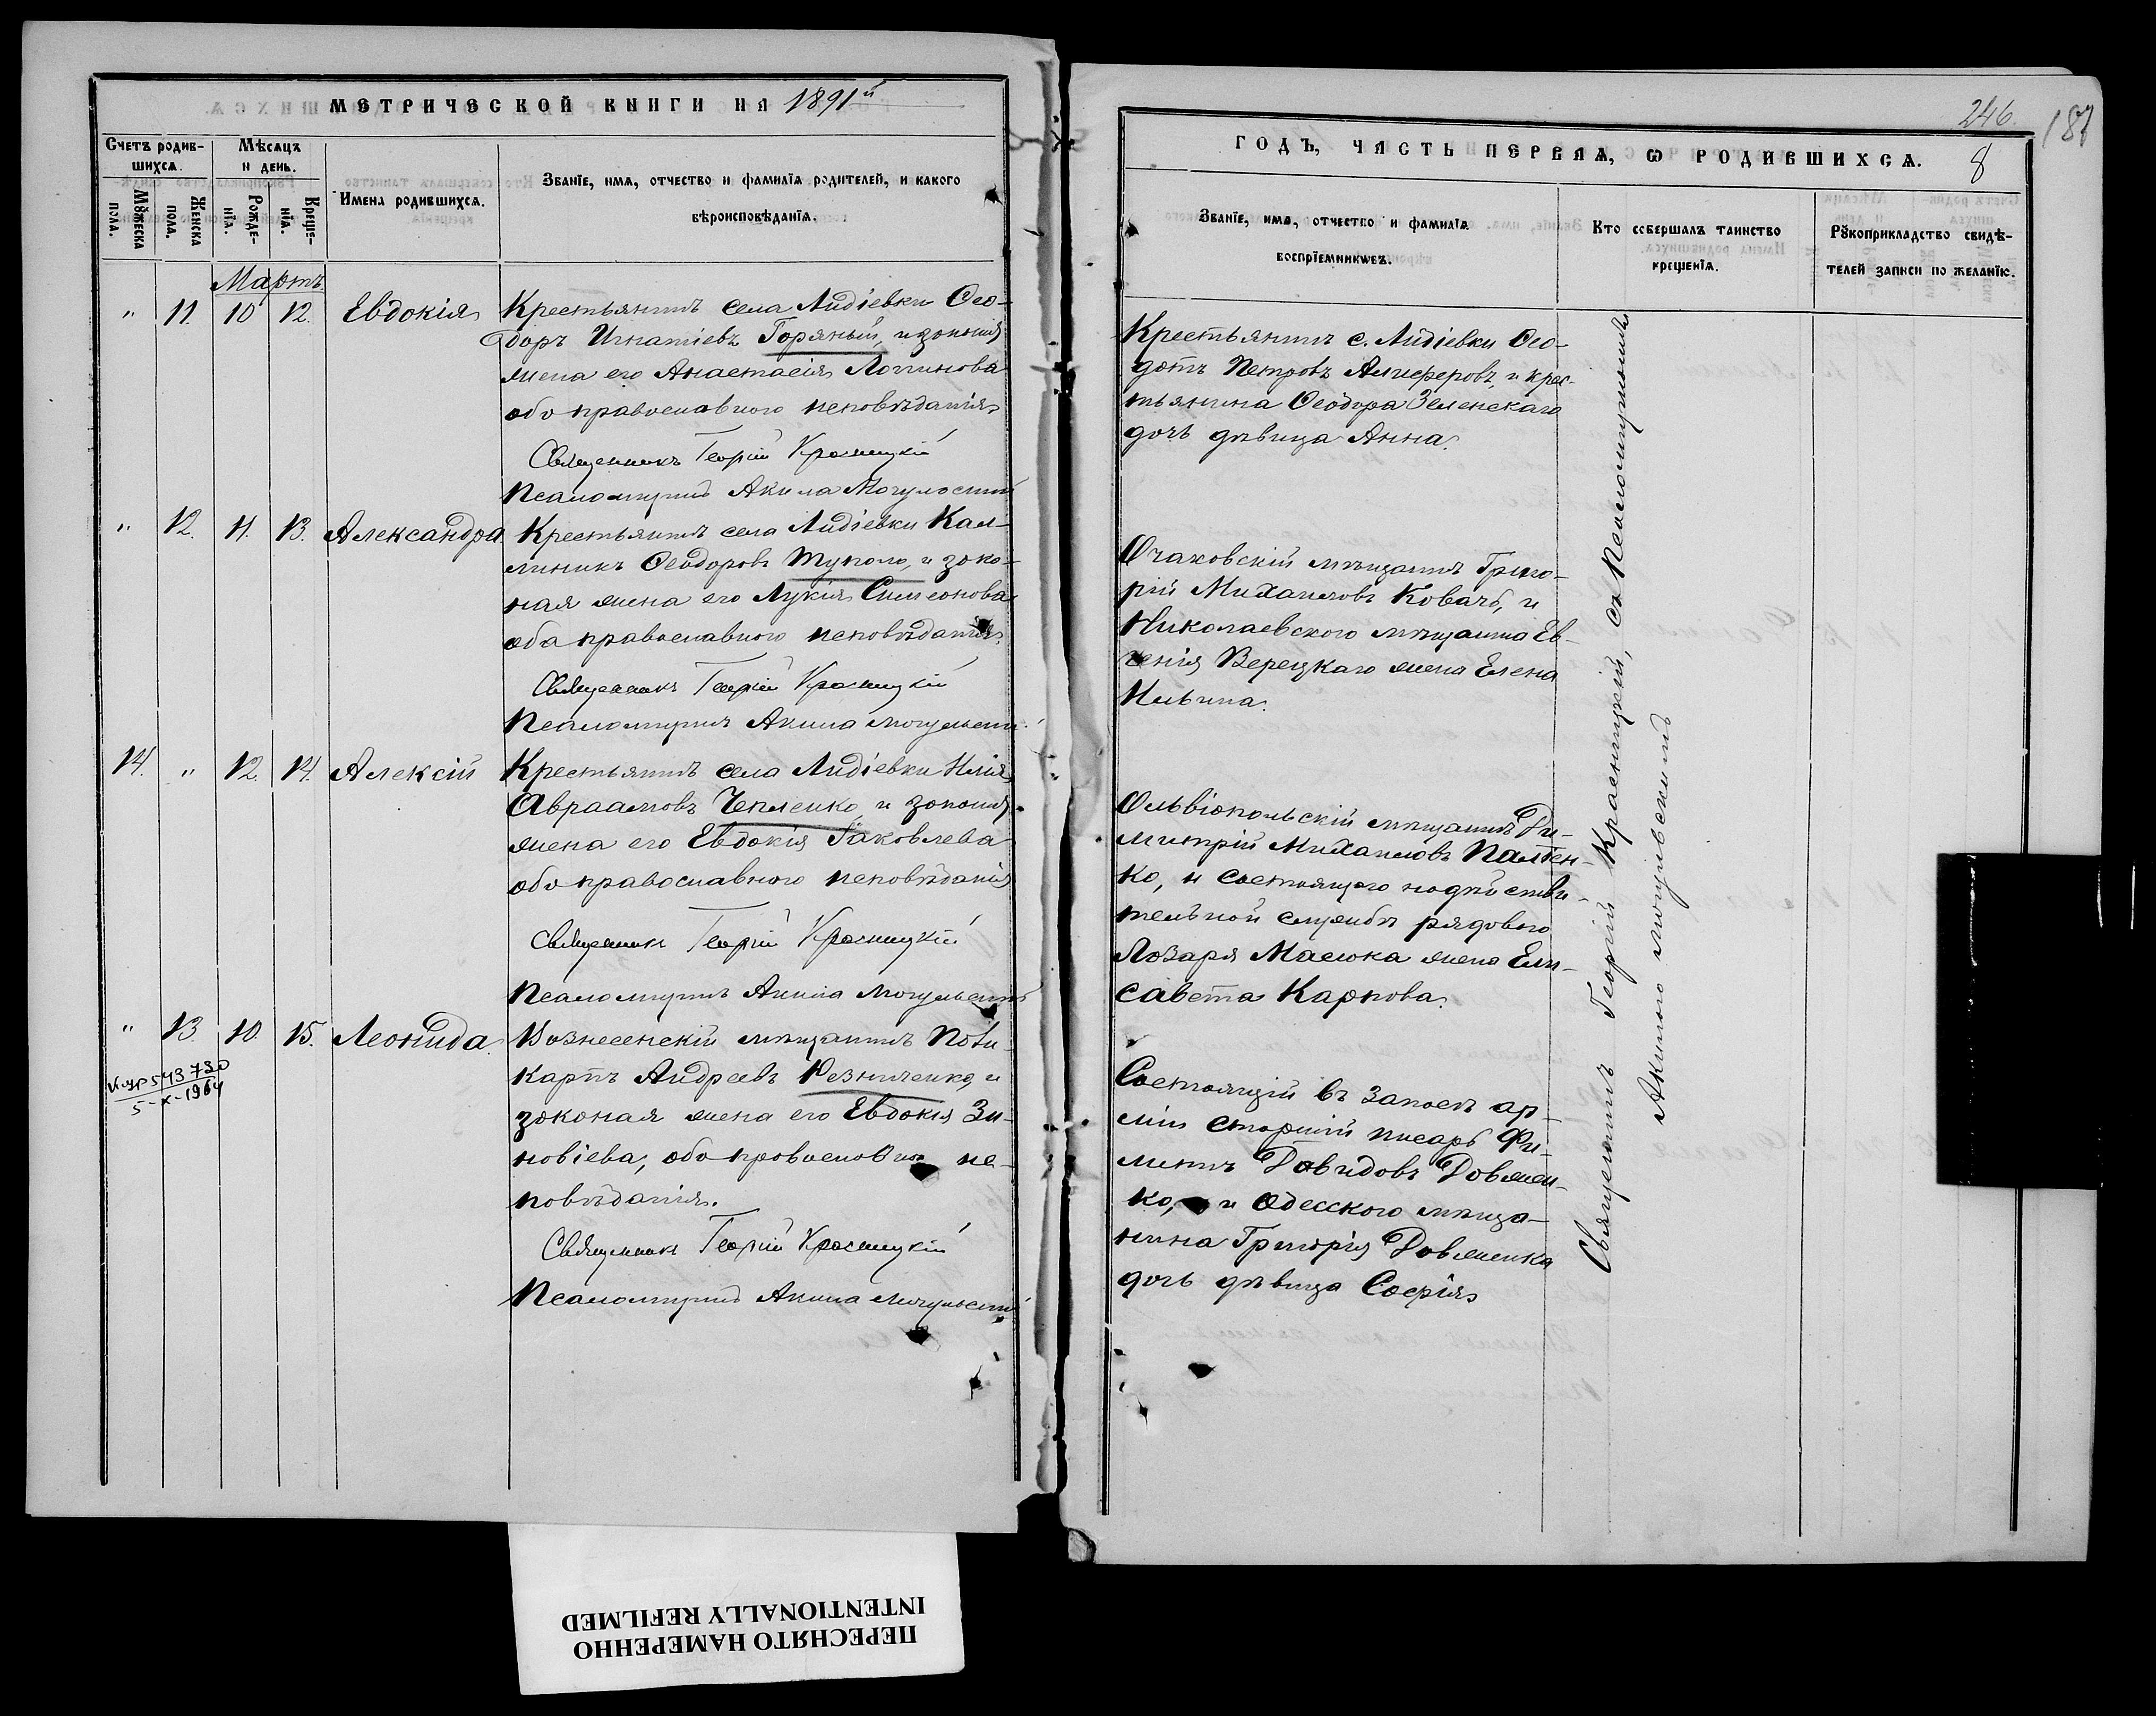 МЕТРИЧЕСКОЙ КНИГИ НА 1891й
Счетъ родив-
шихся.
Мѣсяцъ
и день.
Имена родившихся.
Званїе, имя, отчество и фамилїя родителей, и какого
вѣроисповѣданїя.
Мꙋжеска
пола.
Женска
пола.
Рожде-
нїя.
Креще-
нїя.
Мартъ
" 11. 10 12. Евдокія
Крестьянинъ села Лидіевки Ѳео-
доръ Игнатіевъ Горяный, и зокония
жена его Анастасія Логинова
обо православного исповѣданія
Священникъ Георгій Красницкій
Псаломщикъ Акила Могульскій
" 12. 11. 13. Александра
Крестьянинъ села Лидіевки Кал-
линикъ Ѳеодоровъ Тупало, и зоко-
ная жена его Лукія Симеонова
оба православного исповѣданія.
Священникъ Георгій Красницкій
Псаломщикъ Акила Могульскій
14. " 12. 14. Алексій
Крестьянинъ села Лидіевки Илія
Авраамовъ Чепленко и зокония
жена его Евдокія Іаковлева
обо православного исповѣданія
Священникъ Георгій Красницкій
Псаломщикъ Акила Могульскій
" 13. 10. 15. Леонида
543730
5-X-1964
Вознесенскій мѣщанинъ Поли-
карпъ Андреевъ Резниченко, и
зоконая жена его Евдокія Зи-
новіева, обо провославно ис-
повѣданія.
Священникъ Георгій Красницкій
Псаломщикъ Акила Могульскій
246.
187
ГОДЪ, ЧАСТЬ ПЕРВАЯ, Ѡ РОДИВШИХСЯ.
8
Званїе, имя, отчество и фамилїя
воспрїемникѡвъ.
Кто совершалъ таинство
крещенїя.
Рꙋкоприкладство свидѣ-
телей записи по желанїю.
Крестьянинъ с. Лидіевки Ѳео-
дотъ Петровъ Анцеферовъ, и крес-
тьянина Ѳеодора Зеленскаго
дочь дѣвица Анна.
Очаковскій мѣщанинъ Григо-
рій Михаиловъ Ковачъ, и
Николаевского мѣщанина Ев-
генія Верецкаго жена Елена
Ильина.
Ольвіопольскій мѣщанинъ Ди-
митрій Михаиловъ Палѣен-
ко, и состоящого на дѣйстви-
тельной службѣ рядового
Лозаря Масюка жена Ели-
савета Карпова.
Состоящій въ запасѣ ар-
міи старшій писарь Фи-
липпъ Давидовъ Довжен-
ко, и Одесского мѣща-
нина Григорія Довженка
дочь дѣвица Софія
Священникъ Георгій Красницкій, съ Псаломщикомъ
Акилою Могульскимъ
ПЕРЕСНЯТО НАМЕРЕННО
INTENTIONALLY REFILMED